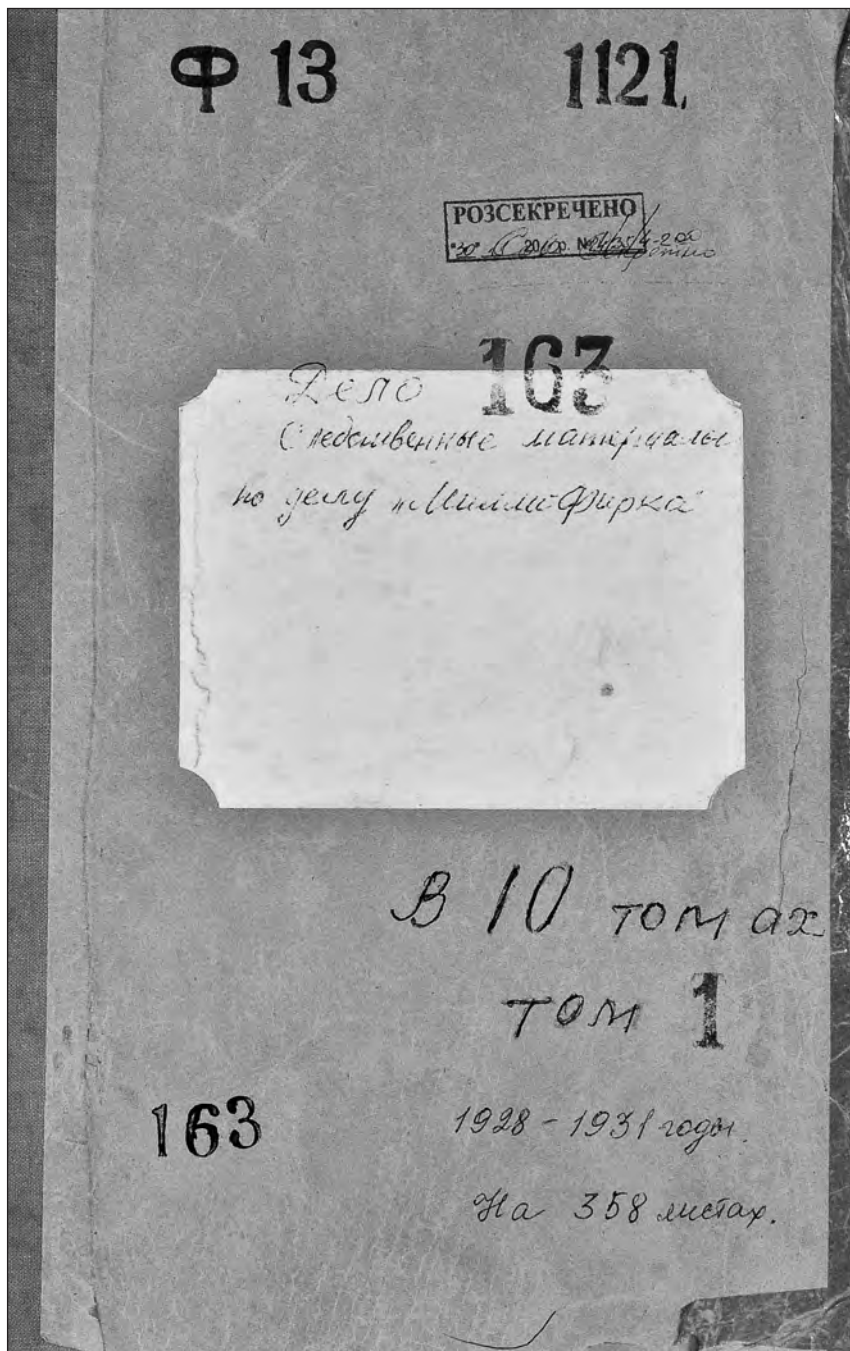 Ф 13 1121
РОЗСЕКРЕЧЕНО
"30" 20 р. №
Секретно
163
Дело
Следственные материалы
по делу "Милли-Фирка"
В 10 томах
том 1
163
1928-1931 годы.
На 358 листах.